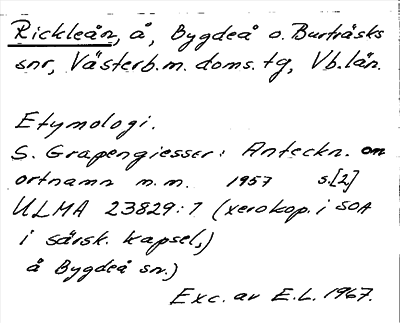 Rickleån, å, Bygdeå o. Burträsks
snr, Västerb.m. doms. tg, Vb.län.
Etymologi.
S. Grapengiesser: Anteckn. om
ortnamn m.m. 1957 s.[2]
ULMA 23829:7 (xerokop. i SOA
i särsk. kapsel,)
å Bygdeå sn.)
Exc. av E.L. 1967.